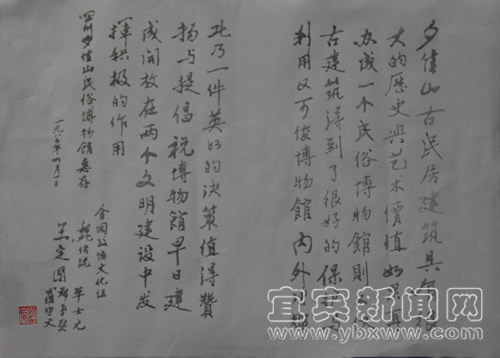 夕佳山古民居建筑具有
大的歷史與艺术價值如
办成一个民俗博物館則
古建筑得到了很好的保护
利用又可使博物館内外
此乃一件英明的决策值得贊
扬与提倡祝博物館早日建
成开放在两个文明建设中发
揮积极的作用
四川夕佳山民俗博物館惠存
一九八 年四月一日
全国政协文化组
单士元
羅哲文
宜宾新闻网
www.ybxww.com